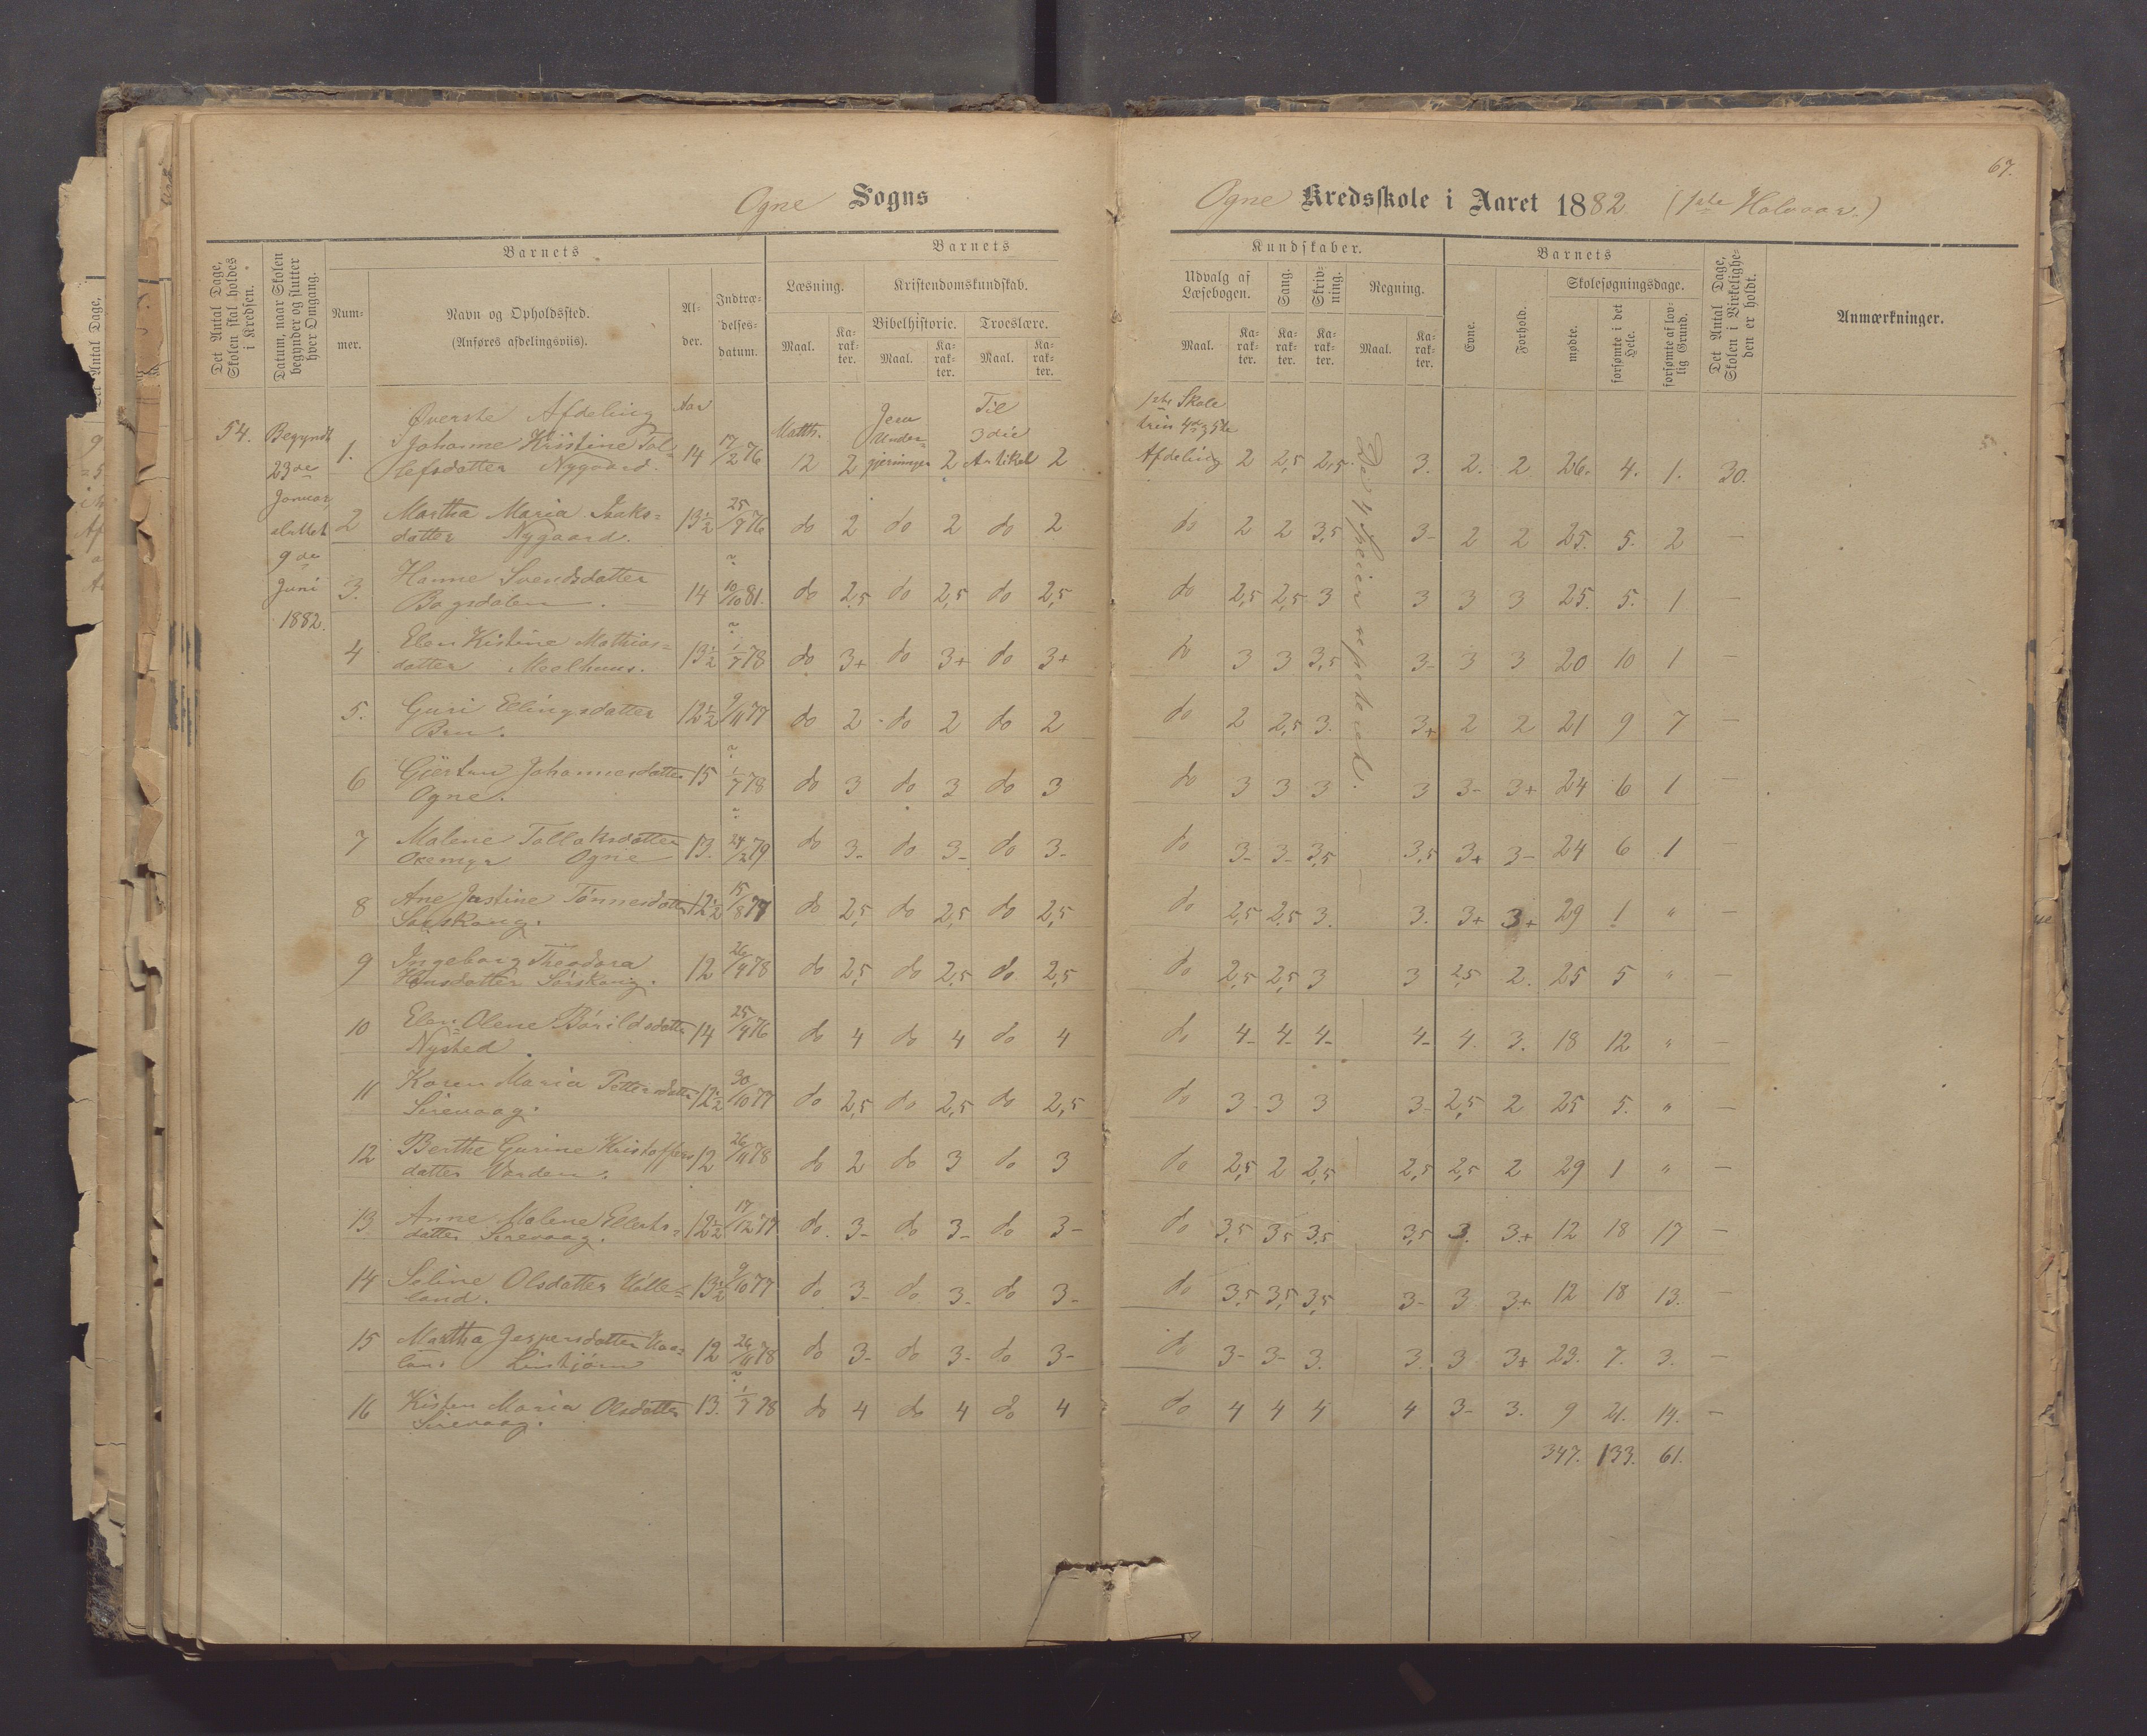 67.
Ogne Sogns
Ogne Kredsskole i Aaret 1882 (1ste Halvaar.)
Det Antal Dage, Skolen skal holdes i Kredsen.
Datum, naar Skolen begynder og slutter hver Omgang.
Barnets
Barnets
Kundskaber.
Barnets
Det Antal Dage, Skolen i Virkeligheden er holdt.
Anmærkninger.
Num-
mer.
Navn og Opholdssted.
(Anføres afdelingsviis).
Al-
der.
Indtræ-
delses-
datum.
Læsning.
Kristendomskundskab.
Bibelhistorie.
Troeslære.
Udvalg af Læsebogen.
Sang.
Skriv-
ning.
Regning.
Evne.
Forhold.
Skolesøgningsdage.
mødte.
forsømte i det Hele.
forsømte af lovlig Grund.
Maal.
Ka-
rak-
ter.
Maal.
Ka-
rak-
ter.
Maal.
Ka-
rak-
ter.
Maal.
Ka-
rak-
ter.
Ka-
rak-
ter.
Ka-
rak-
ter.
Maal.
Ka-
rak-
ter.
54.
Begyndt
23de
Januar,
sluttet
9de
Juni
1882.
Øverste Afdeling Aar
De 4 Specier repeteret.
1. Johanne Kristine Tol-
lefsdatter Nygaard. 14 17/2 76 Matth. 12 2 Jesu Undergjerninger 2 Til 3die Artikel 2 1ste Skoletrin 4de & 5te Afdeling 2 2,5 2,5 3. 2. 2 26. 4. 1. 30.
2 Martha Maria Isaks=
datter Nygaard. 13½ 25/9 76 do 2 do 2 do 2 do 2 2 3,5 3- 2 2 25. 5. 2 —
3. Hanne Svendsdatter
Bogsdalen. 14 ? 10/10 81. do 2,5 do 2,5 do 2,5 do 2,5 2,5 3 3 3 3 25. 5. 1 —
4 Elen Kistine Mathias=
datter Moelhuus. 13½ ? 1/7 78 do 3+ do 3+ do 3+ do 3 3 3,5 3- 3 3 20 10 1 —
5. Guri Ellingsdatter
Bru. 12½ 9/11 77 do 2 do 2 do 2 do 2 2,5 3. 3+ 2 2 21 9 7 —
6 Gjertru Johannesdatter
Ogne. 15 ? 1/7 78 do 3 do 3 do 3 do 3 3 3 3 3- 3+ 24 6 1 —
7 Malene Tollaksdatter
Oremyr Ogne 13. ? 24/2 79 do 3- do 3- do 3- do 3- 3- 3,5 3,5 3+ 3- 24 6 1 —
8 Ane Justine Tønnesdatter
Sørskoug. 12½ 15/8 77 do 2,5 do 2,5 do 2,5 do 2,5 2,5 3. 3. 3+ 3+ 29 1 " —
9 Ingeborg Theodora
Hansdatter Sørskoug. 12 26/9 78 do 2,5 do 2,5 do 2,5 do 2,5 2,5 3 3 2,5 2. 25 5 " —
10 Elen Olene Bårildsdatter
Nysted. 14 25/9 76 do 4 do 4 do 4 do 4- 4- 4- 4- 4. 3. 18 12 " —
11 Karen Maria Pettersdatter
Sirevaag. 12½ 30/10 77 do 2,5 do 2,5 do 2,5 do 3- 3 3 3- 2,5 2 25 5. " —
12 Berthe Gurine Kristoffers
datter Varden. 12 26/11 78 do 2 do 3 do 3 do 2,5 2 2,5 2,5 2,5 2 29 1 " —
13 Anne Malene Ellerts=
datter Sirevaag. 12½ 17/12 77 do. 3- do 3- do 3- do 3,5 3,5 3,5 3,5 3. 3+ 12 18 17 —
14 Seline Olsdatter Målle=
land. 13½ 9/10 77 do 3- do 3- do 3- do 3,5 3,5 3,5 3- 3 3+ 12 18 13. —
15 Martha Jespersdatter
12 26/11 78 do 3- do 3- do 3- do 3- 3- 3. 3. 3 3+ 23. 7. 3. —
16 Kisten Maria Olsdatter
Sirevaag. 13. ? 1/7 78 do 4 do 4 do 4 do 4 4 4 4 3- 3. 9 21. 14. —
347. 133. 61.